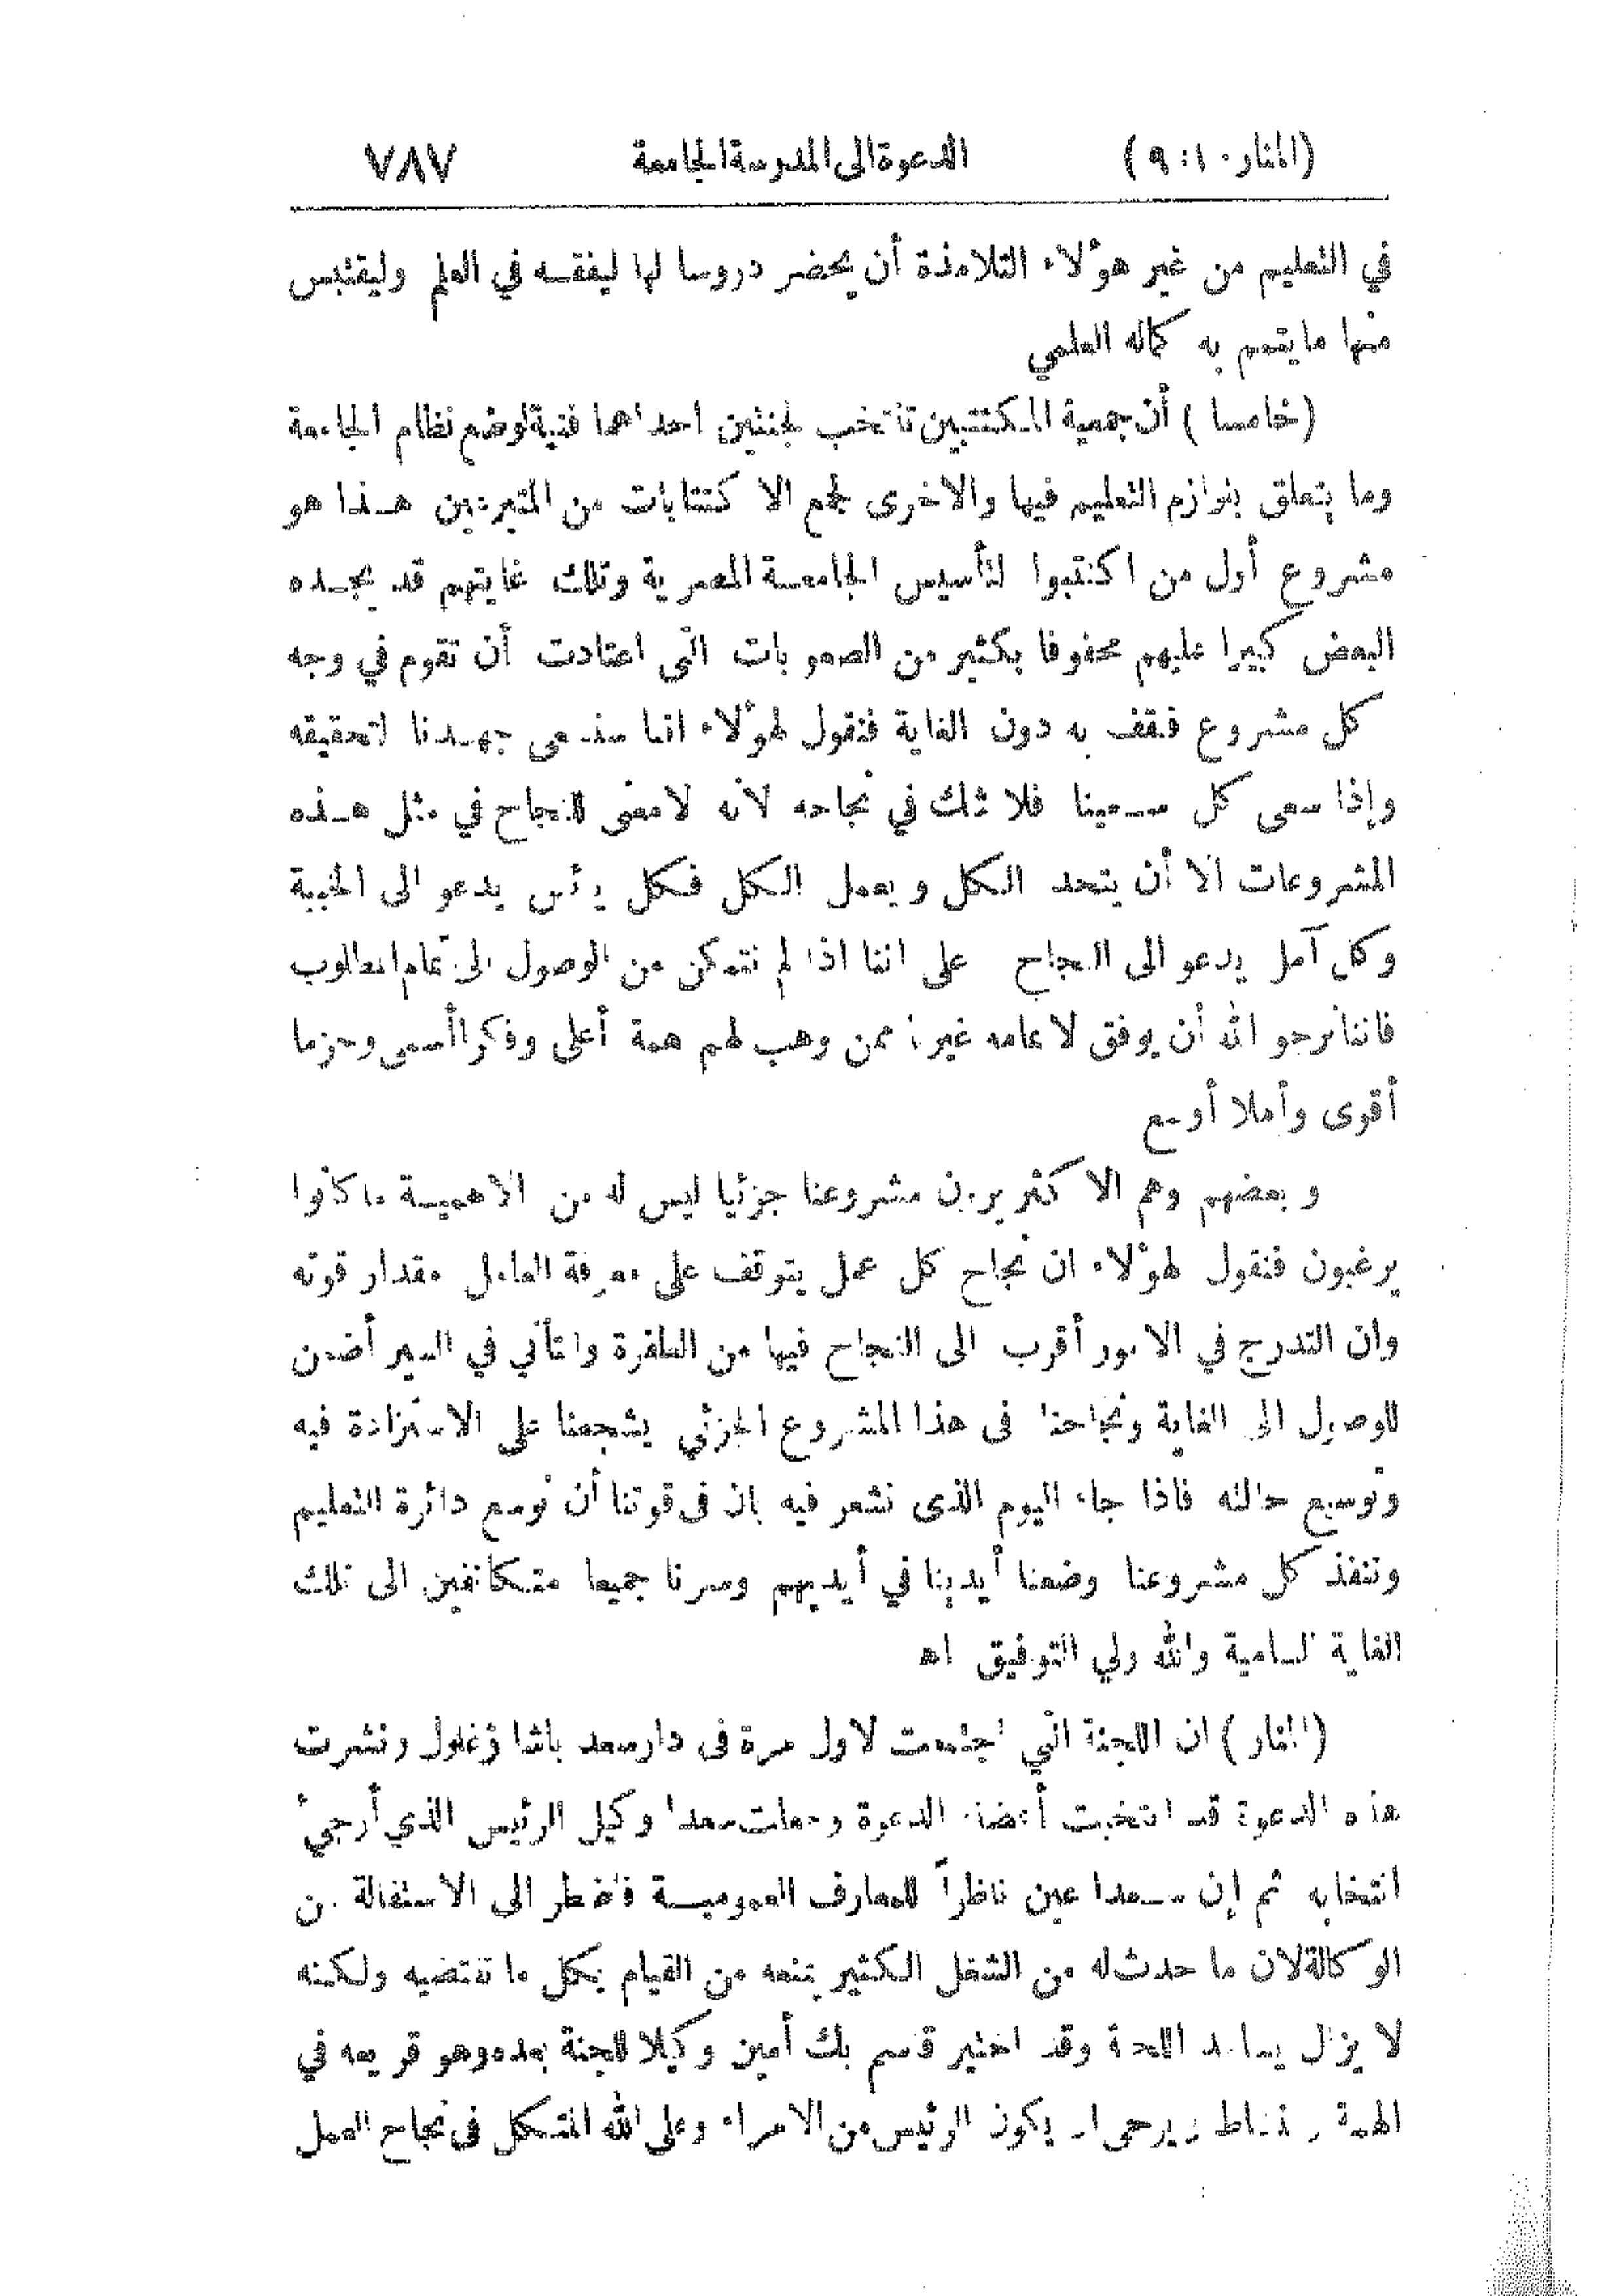 (المنار ١٠: ٩) الدعوة الى المدرسة الجامعة ٧٨٧
في التعليم من غير هؤلاء التلامذة أن يحضر دروسا لها ليفقه في العلم وليقتبس
منها ما يتمم به كماله العلمي
(خامسا) أن جمعية المكتتبين تنتخب لجنتين احداهما فنية لوضع نظام الجامعة
وما يتعلق بلوازم التعليم فيها والاخرى لجمع الاكتتابات من المتبرعين هذا هو
مشروع أول من اكتتبوا لتأسيس الجامعة المصرية وتلك غايتهم قد يجده
البعض كبيرا عليهم محفوفا بكثير من الصعوبات التى اعتادت أن تقوم في وجه
كل مشروع فتقف به دون الغاية فنقول لهؤلاء اننا سنسعى جهدنا لتحقيقه
وإذا سعى كل سعينا فلا شك في نجاحه لانه لا معنى للنجاح في مثل هذه
المشروعات الا أن يتحد الكل ويعمل الكل فكل يأس يدعو الى الخيبة
وكل آمل يدعو الى النجاح على اننا اذا لم نتمكن من الوصول الى تمام المطلوب
فاننا نرجو الله أن يوفق لاتمامه غيرنا ممن وهب لهم همة أعلى وفكرا أسمى وحزما
أقوى وأملا أوسع
وبعضهم وهم الاكثر يرون مشروعنا جزئيا ليس له من الاهمية ما كانوا
يرغبون فنقول لهؤلاء ان نجاح كل عمل يتوقف على معرفة العامل مقدار قوته
وان التدرج في الامور أقرب الى النجاح فيها من الطفرة والتأني في السير أضمن
للوصول الى الغاية ونجاحنا فى هذا المشروع الجزئي يشجعنا على الاستزادة فيه
وتوسيع حالته فاذا جاء اليوم الذى نشعر فيه بان فى قوتنا أن نوسع دائرة التعليم
وننفذ كل مشروعنا وضعنا أيدينا في أيديهم وسرنا جميعا متكاتفين الى تلك
الغاية السامية والله ولي التوفيق اه
(المنار) ان اللجنة التي اجتمعت لاول مرة فى دار سعد باشا زغلول ونشرت
هذه الدعوة قد انتخبت أعضاء الدعوة وجعلت سعدا وكيل الرئيس الذي أرجئ
انتخابه ثم إن سعدا عين ناظراً للمعارف العمومية فاضطر الى الاستقالة من
الوكالة لان ما حدث له من الشغل الكثير يمنعه من القيام بكل ما تقتضيه ولكنه
لا يزال يساعد اللجنة وقد اختير قاسم بك أمين وكيلا للجنة بعده وهو قريعه في
الهمة والنشاط ويرجى ان يكون الرئيس من الامراء وعلى الله المتكل فى نجاح العمل